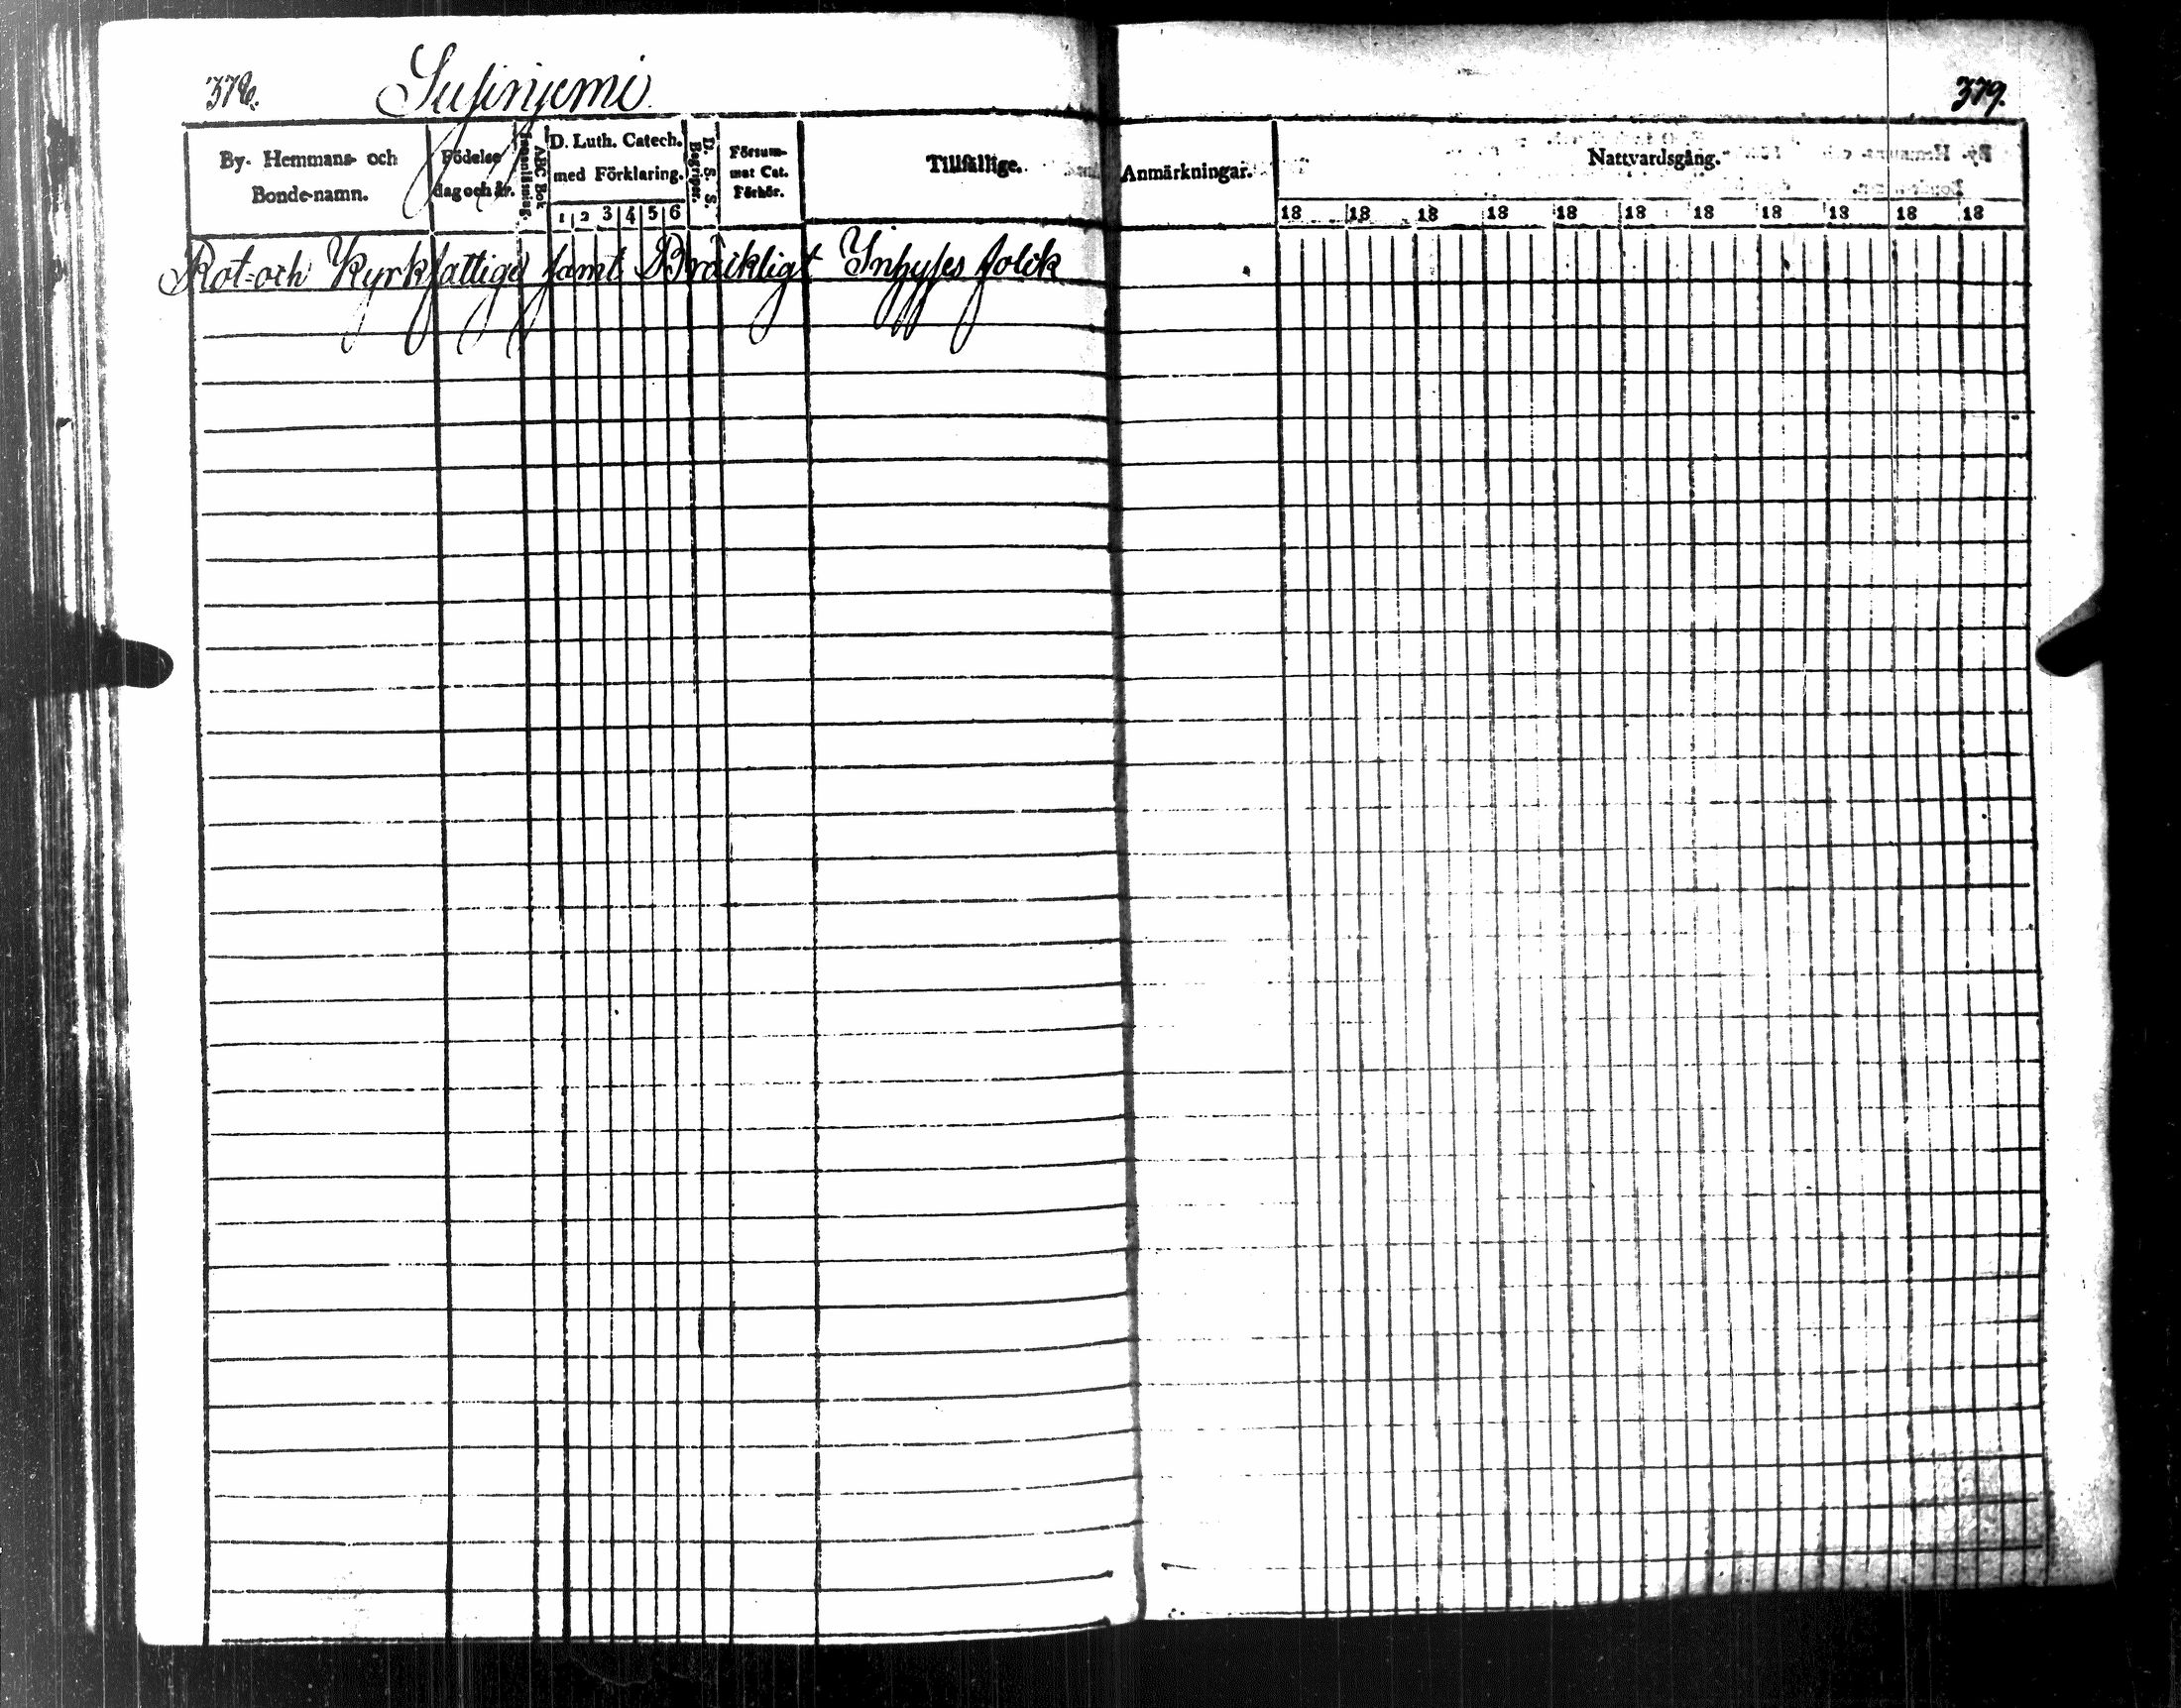 378. Susiniemi
By- Hemmans- och Bonde-namn.
Födelse dag och år.
Innanläsning.
ABC Bok
D. Luth. Catech. med Förklaring.
1 2 3 4 5 6
D. S. S. Begriper.
Försum-mat Cat. Förhör.
Tillfällige.
Rot- och Kyrkfattige samt Bräckligt Inhyses folck
379.
Anmärkningar.
Nattvardsgång.
18 18 18 18 18 18 18 18 18 18 18